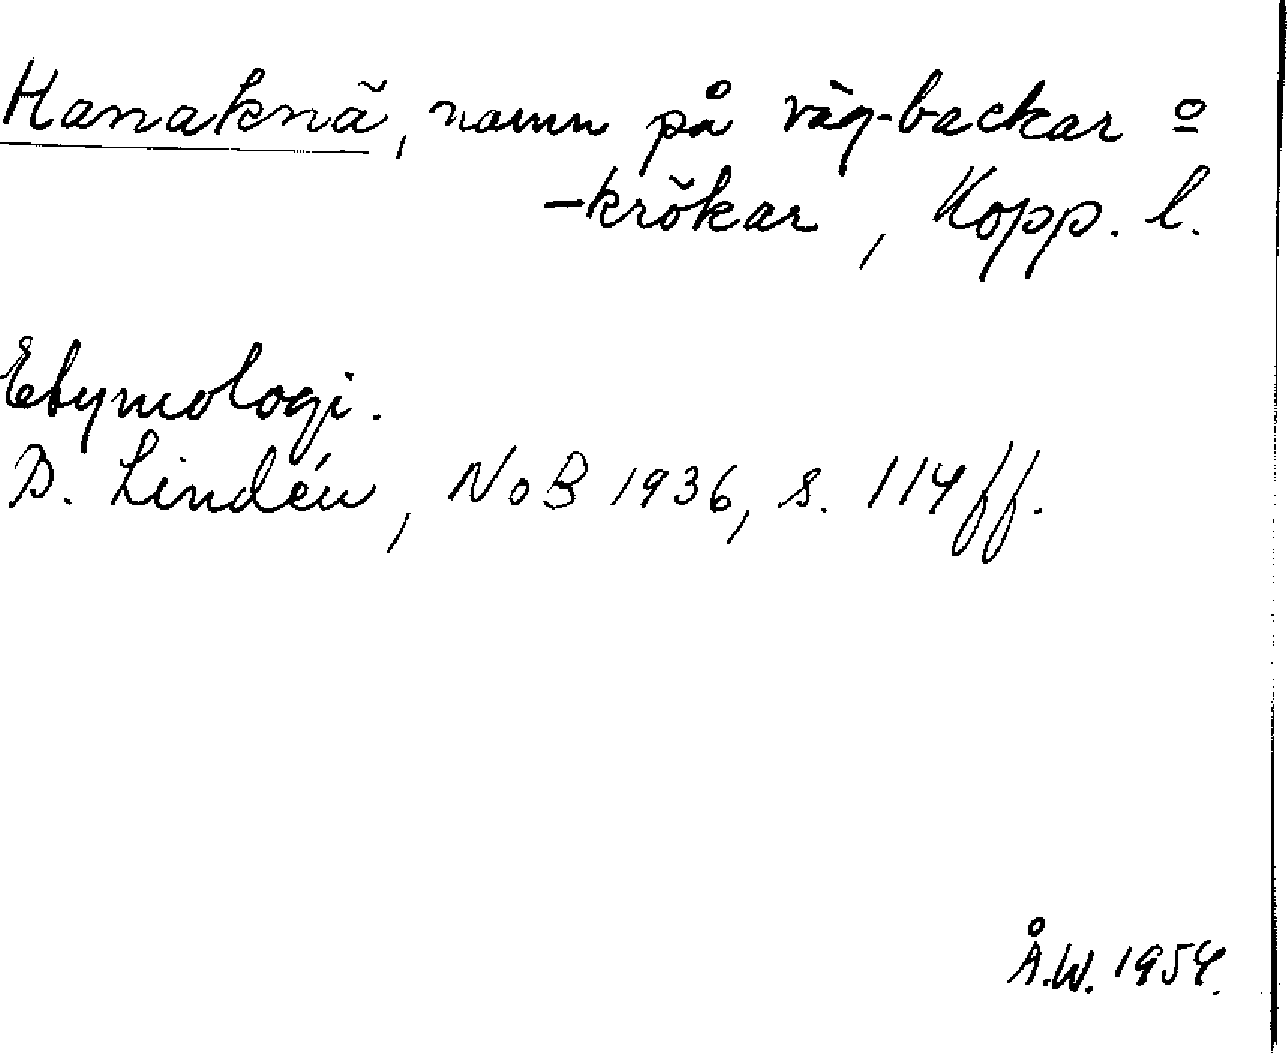 Hanaknä, namn på väg-backar o
-krökar, Kopp. l.
Etymologi.
B. Lindén, NoB 1936, s. 114 ff.
Å.W. 1954.